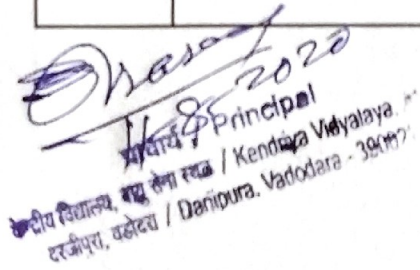 11/8/2020
प्राचार्य / Principal
केन्द्रीय विद्यालय, वायु सेना स्थल / Kendriya Vidyalaya
दरजीपुरा, वडोदरा / Darjipura, Vadodara -